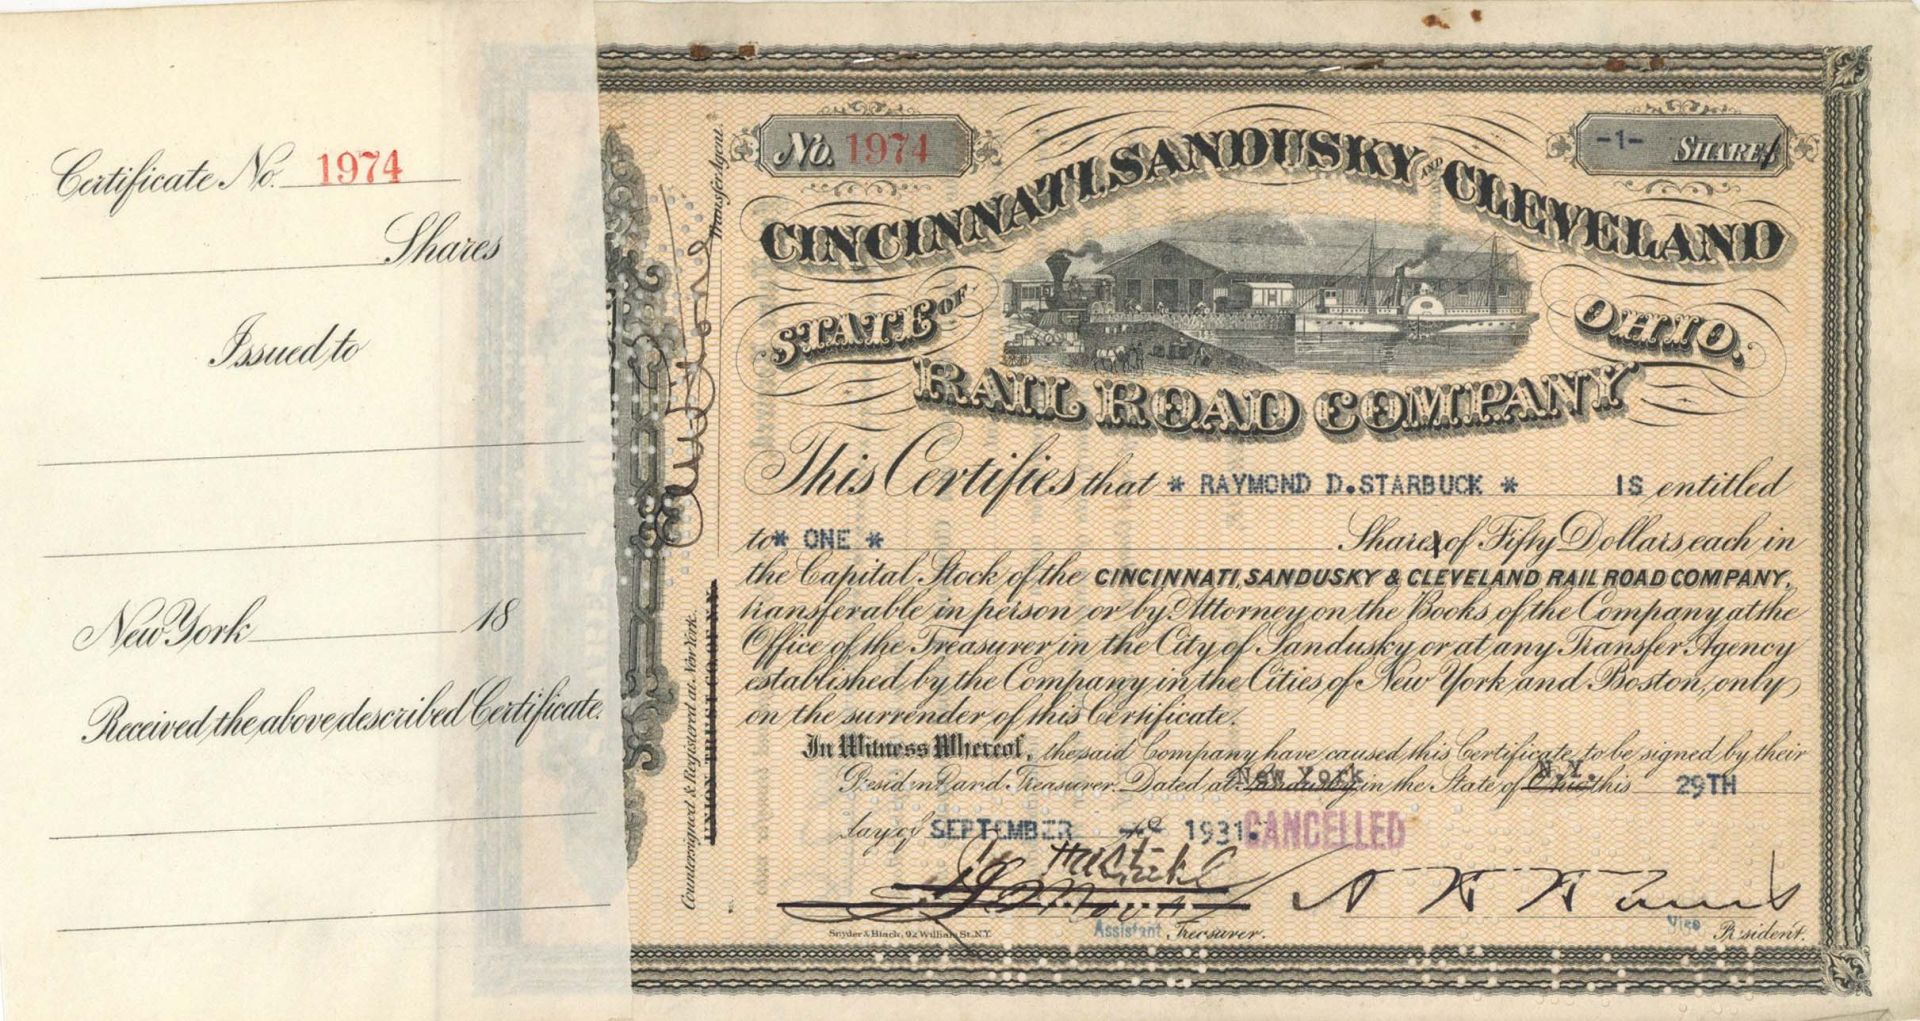 Certificate No. 1974
Shares
Issued to
New York 18
Received the above described Certificate.
Transfer Agent.
Countersigned & Registered at New York.
UNION TRUST CO. OF N.Y.
No. 1974
-1- SHARES
CINCINNATI, SANDUSKY AND CLEVELAND
STATE OF OHIO.
RAIL ROAD COMPANY
This Certifies that * RAYMOND D.STARBUCK * IS entitled
to * ONE * Shares of Fifty Dollars each in
the Capital Stock of the CINCINNATI, SANDUSKY & CLEVELAND RAIL ROAD COMPANY,
transferable in person or by Attorney on the Books of the Company at the
Office of the Treasurer in the City of Sandusky or at any Transfer Agency
established by the Company in the Cities of New York and Boston, only
on the surrender of this Certificate.
In Witness Whereof, the said Company have caused this Certificate to be signed by their
President and Treasurer. Dated at Sandusky New York in the State of Ohio N.Y. this 29TH
day of SEPTEMBER 1931. CANCELLED
Snyder & Black, 92 William St. N.Y.
Assistant Treasurer.
Vice President.